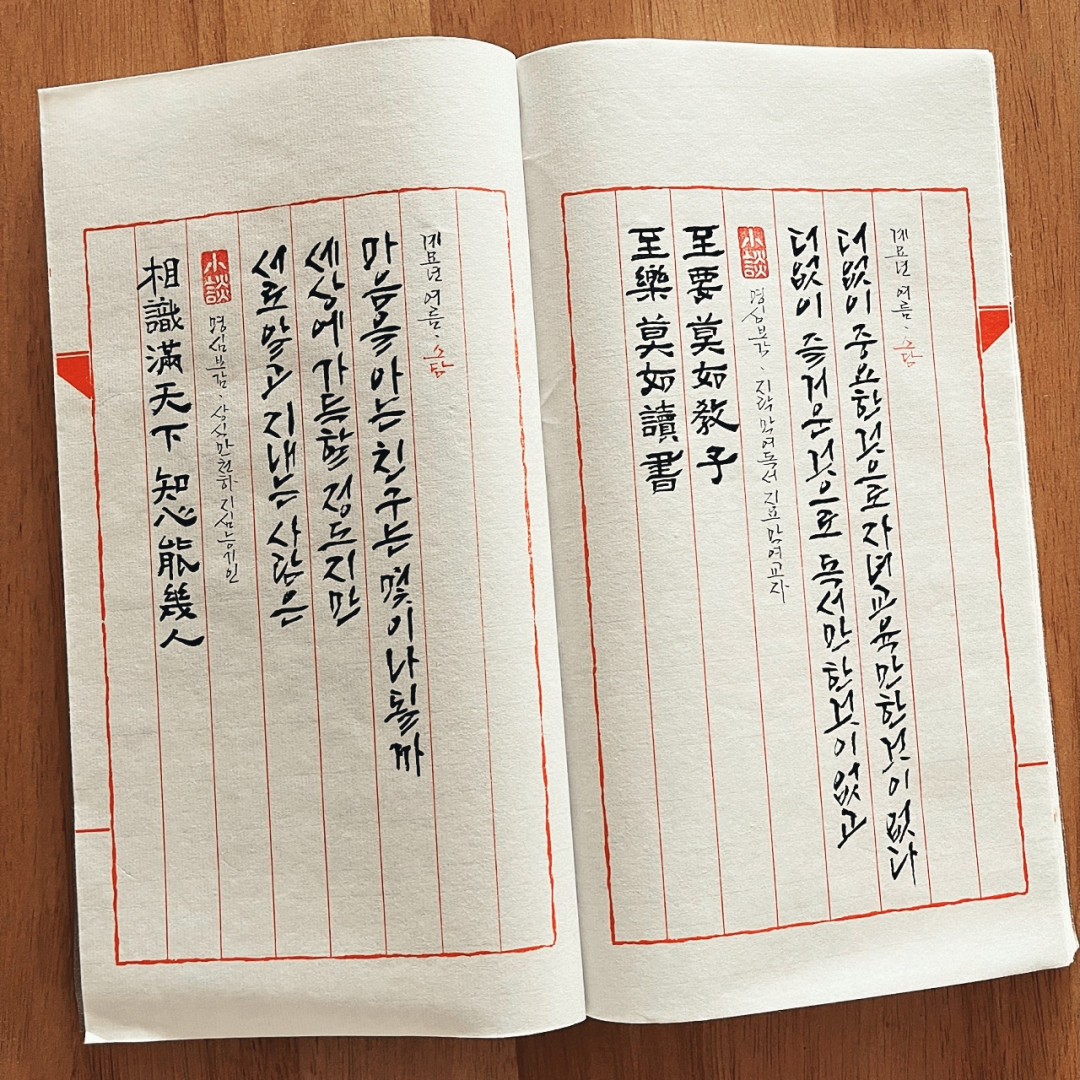 相識滿天下 知心能幾人
小談
명심보감 · 상식만천하 지심능기인
서로 알고 지내는 사람은
세상에 가득할 정도지만
마음을 아는 친구는 몇이나 될까
계묘년 여름 · 소담
至樂 莫如讀書
至要 莫如教子
小談
명심보감 · 지락막여독서 지요막여교자
더없이 즐거운 것으로 독서만한 것이 없고
더없이 중요한 것으로 자녀교육만한 것이 없다
계묘년 여름 · 소담